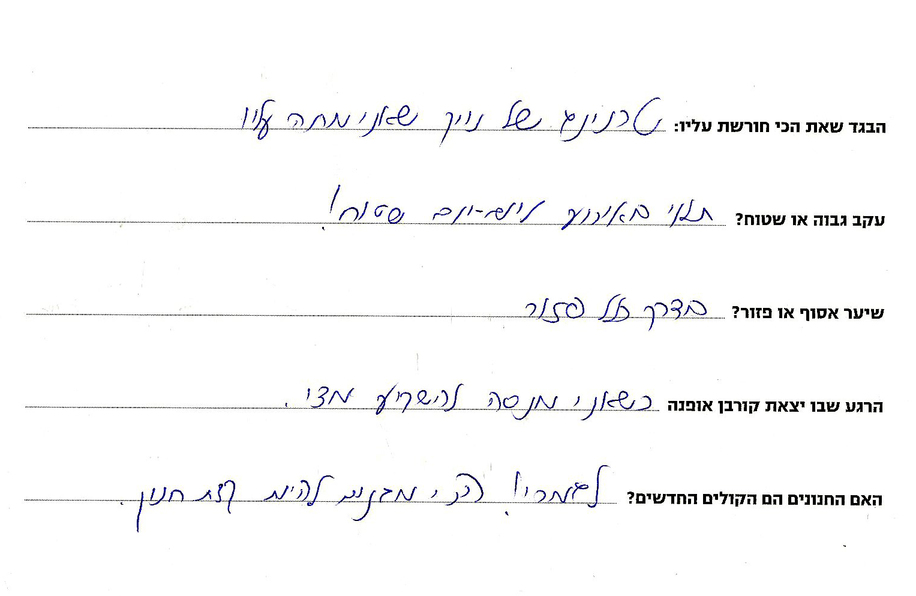 הבגד שאת הכי חורשת עליו: טרנינג של נייק שאני מתה עליו
עקב גבוה או שטוח? תלוי באירוע ביום-יום שטוח!
שיער אסוף או פזור? בדרך כלל פזור
הרגע שבו יצאת קורבן אופנה כשאני מנסה להשקיע מצ'י.
האם החנונים הם הקולים החדשים? לגמרי! הכי מגניב להיות קצת חנון.